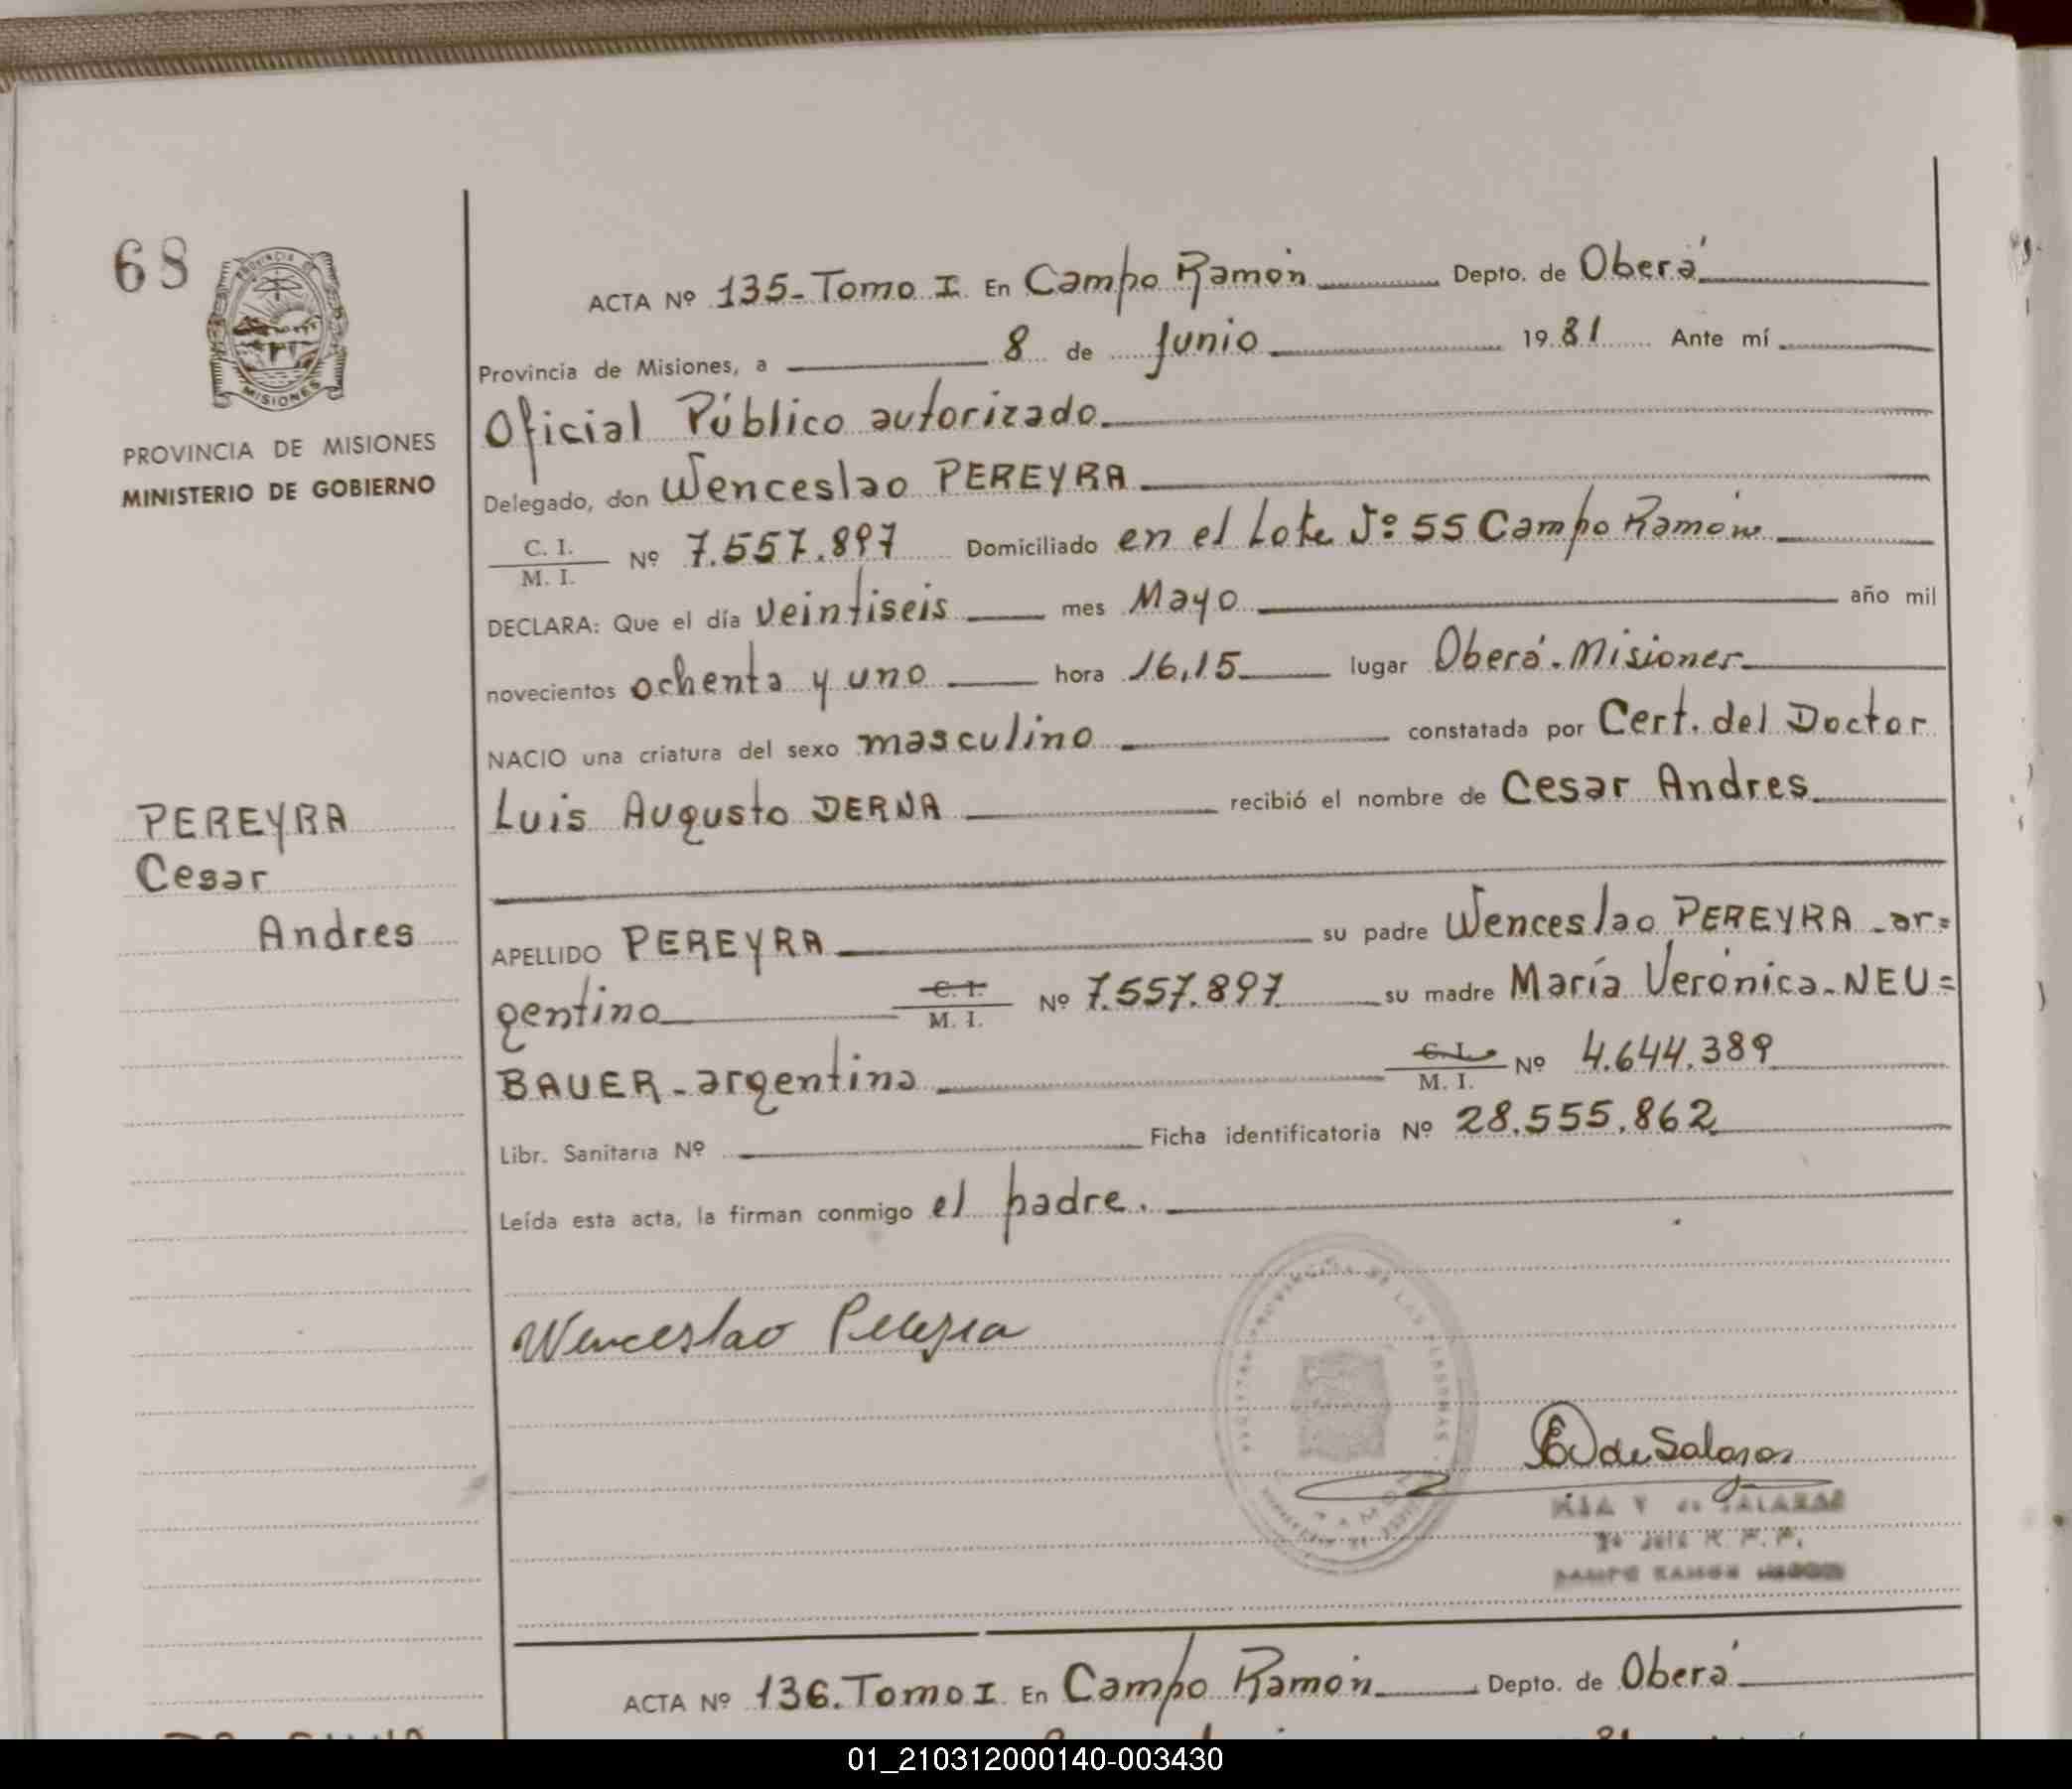 68
PROVINCIA DE MISIONES
MINISTERIO DE GOBIERNO
ACTA Nº 135-Tomo I. En Campo Ramón Depto. de Oberá
Provincia de Misiones, a 8 de Junio 1981 Ante mí
Oficial Público autorizado
Delegado, don Wenceslao PEREYRA
C. I.
M. I. Nº 7.557.897 Domiciliado en el Lote Nº 55 Campo Ramón
DECLARA: Que el día veintiseis mes Mayo año mil
novecientos ochenta y uno hora 16,15 lugar Oberá-Misiones
NACIO una criatura del sexo masculino constatada por Cert. del Doctor
Luis Augusto DERNA recibió el nombre de Cesar Andres
PEREYRA
Cesar
Andres
APELLIDO PEREYRA su padre Wenceslao PEREYRA - ar=
gentino C. I. M. I. Nº 7.557.897 su madre María Verónica NEU=
BAUER - argentina C. I. M. I. Nº 4.644.389
Libr. Sanitaria Nº Ficha identificatoria Nº 28.555.862
Leída esta acta, la firman conmigo el padre.
Wenceslao Pereyra
de Salazar
de SALAZAR
CAMPO RAMON
ACTA Nº 136. Tomo I. En Campo Ramón Depto. de Oberá
01_210312000140-003430